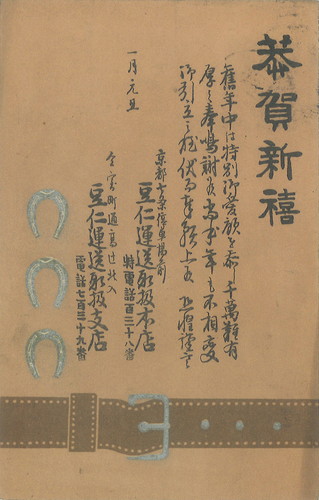 恭賀新禧
舊年中は特別御愛顧を忝し千萬難有
厚く奉鳴謝候尚本年も不相變
御引立之程伏而奉願上候 恐惶謹言
一月元旦
京都七条停車場前
豆仁運送取扱本店
特電話百三十八番
仝室町通萬辻北入
豆仁運送取扱支店
電話七百三十九番